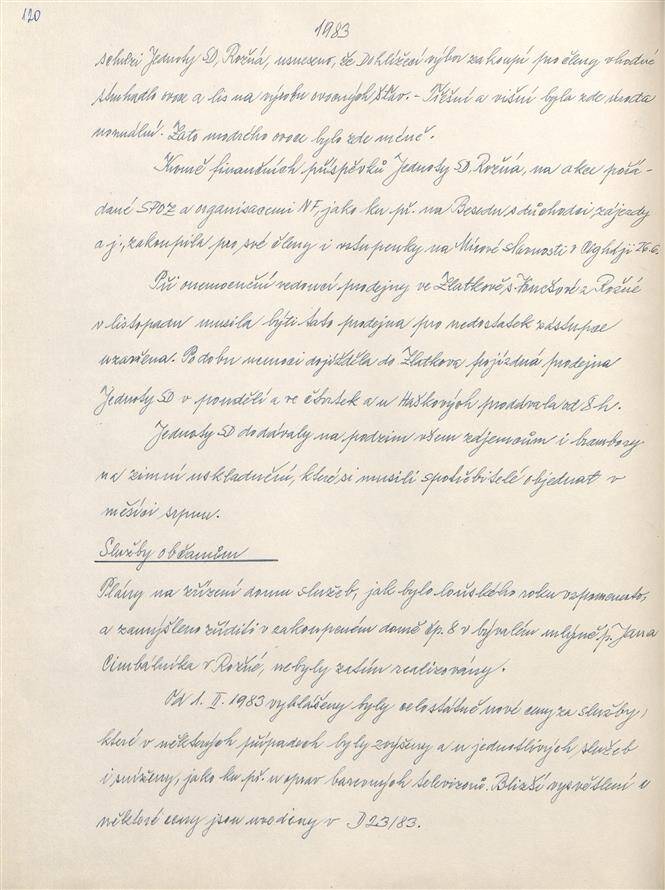 120
1983
schůzi Jednoty SD, Rožná, usneseno, že Dohlížecí výbor zakoupí pro členy vhodné
strouhadlo ovoce a lis na výrobu ovocných šťáv. - Třešní a višní byla zde úroda
normální. Zato modrého ovoce bylo zde méně.
Kromě finančních příspěvků Jednoty SD, Rožná, na akce pořá-
dané SPOZ a organisacemi NF, jako ku př. na Besedu s důchodci zájezdy
a j., zakoupila pro své členy i vstupenky na Mírové slavnosti v 26.6.
Při onemocnění vedoucí prodejny ve Zlatkově, z Rožné
v listopadu musila býti tato prodejna pro nedostatek zástupce
uzavřena. Po dobu nemoci dojížděla do Zlatkova pojízdná prodejna
Jednoty SD v pondělí a ve čtvrtek a u Haškových prodávala od 8 h.
Jednoty SD dodávaly na podzim všem zájemcům i brambory
na zimní uskladnění, které si musili spotřebitelé objednat v
měsíci srpnu.
Služby občanům
Plány na zřízení domu služeb, jak bylo loňského roku vzpomenuto,
a zamýšleno zříditi v zakoupeném domě čp. 8 v bývalém mlýně p. Jana
Cimbálníka v Rožné, nebyly zatím realizovány.
Od 1. II. 1983 vyhlášeny byly celostátně nové ceny za služby,
které v některých případech byly zvýšeny a u jednotlivých služeb
i sníženy, jako ku př. u oprav barevných televizorů. Bližší vysvětlení a
některé ceny jsou uvedeny v D 23/83.